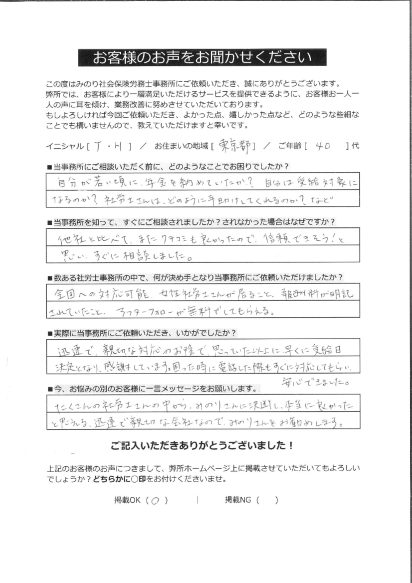 お客様のお声をお聞かせください
この度はみのり社会保険労務士事務所にご依頼いただき、誠にありがとうございます。
弊所では、お客様により一層満足いただけるサービスを提供できるように、お客様お一人一
人の声に耳を傾け、業務改善に努めさせていただいております。
もしよろしければ今回ご依頼いただき、よかった点、嬉しかった点など、どのような些細な
ことでも構いませんので、教えていただけますと幸いです。
イニシャル [ T・H ] / お住まいの地域 [ 東京都 ] / ご年齢 [ 40 ] 代
■当事務所にご相談いただく前に、どのようなことでお困りでしたか？
自分が若い頃に、年金を納めていたか？ 自分は受給対象に
なるのか？ 社労士さんは、どのように手助けしてくれるのか？など
■当事務所を知って、すぐにご相談されましたか？されなかった場合はなぜですか？
他社と比べて、またクチコミも良かったので、信頼できそう！と
思い、すぐに相談しました。
■数ある社労士事務所の中で、何が決め手となり当事務所にご依頼いただけましたか？
全国への対応可能 女性社労士さんが居ること、報酬料が明記
されていたこと、アフターフォローが無料でしてもらえる。
■実際に当事務所にご依頼いただき、いかがでしたか？
迅速で、親切な対応のお陰で思っていた以上に早くに受給日
決定となり、感謝しています。困った時に電話した際もすぐに対応してもらい、
安心できました。
■今、お悩みの別のお客様に一言メッセージをお願いします。
たくさんの社労士さんの中から、みのりさんに決断し、本当に良かった
と思える、迅速で親切な会社なので、みのりさんをお勧めします。
ご記入いただきありがとうございました！
上記のお客様のお声につきまして、弊所ホームページ上に掲載させていただいてもよろしい
でしょうか？どちらかに○印をお付けくださいませ。
掲載OK（ ○ ） | 掲載NG（ ）